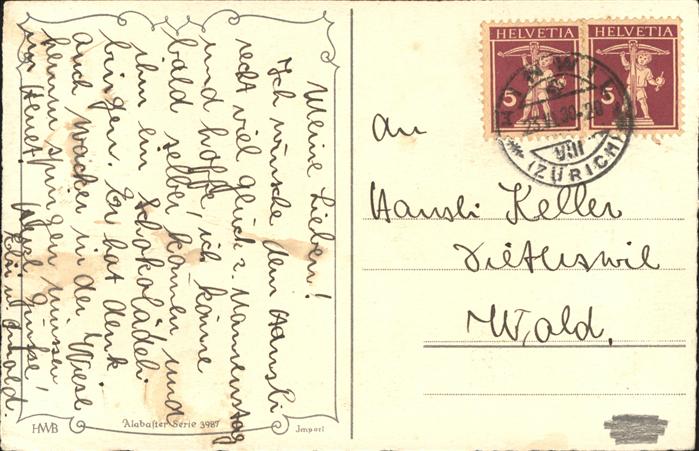 Meine Lieben!
Ich wünsche dem Hansli
recht viel Glück z. Namenstag
und hoffe, ich könne
bald selber kommen und
ihm ein Schokolädeli
bringen. Er hat denk
auch wacker in der Wiese
helfen springen müssen
im Heuet! Viele Grüsse,
Arnold.
HWB
Alabaster Serie 3987
Import
HELVETIA
5
HELVETIA
5
VIII
(ZÜRICH)
An
Hansli Keller
Diethswil
Wald.